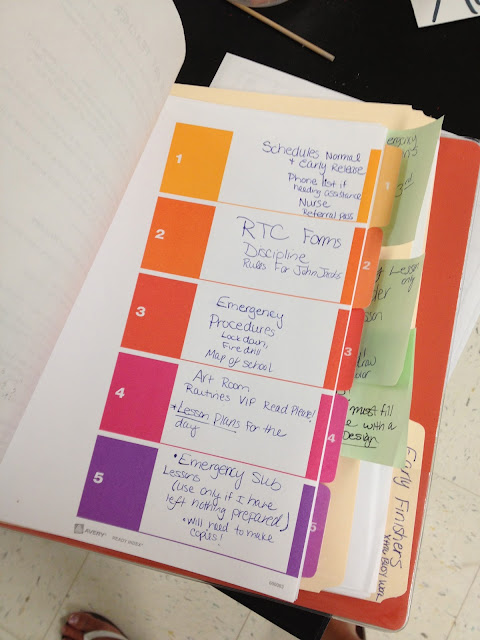 1
Schedules Normal
& Early Release
Phone list if
needing assistance
Nurse
Referral pass
1
2
RTC Forms
Discipline
Rules For John Jacobs
2
3
Emergency
Procedures
Lockdown,
Fire drill
Map of school
3
4
Art Room
Routines VIP Read Please!
*Lesson Plans for the
day
4
5
• Emergency Sub
Lessons
(use only if I have
left nothing prepared)
• Will need to make
copies!
5
AVERY
READY INDEX
3rd
Lesson
only
most fill
with a
Design
Early Finishers